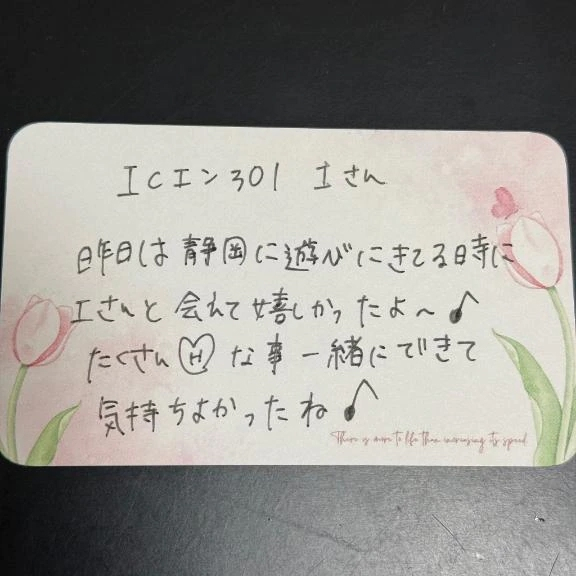 ICエン301 Iさん
昨日は静岡に遊びにきてる時に
Iさんと会えて嬉しかったよ〜♪
たくさんⒽな事一緒にできて
気持ちよかったね♪
There is more to life than increasing its speed